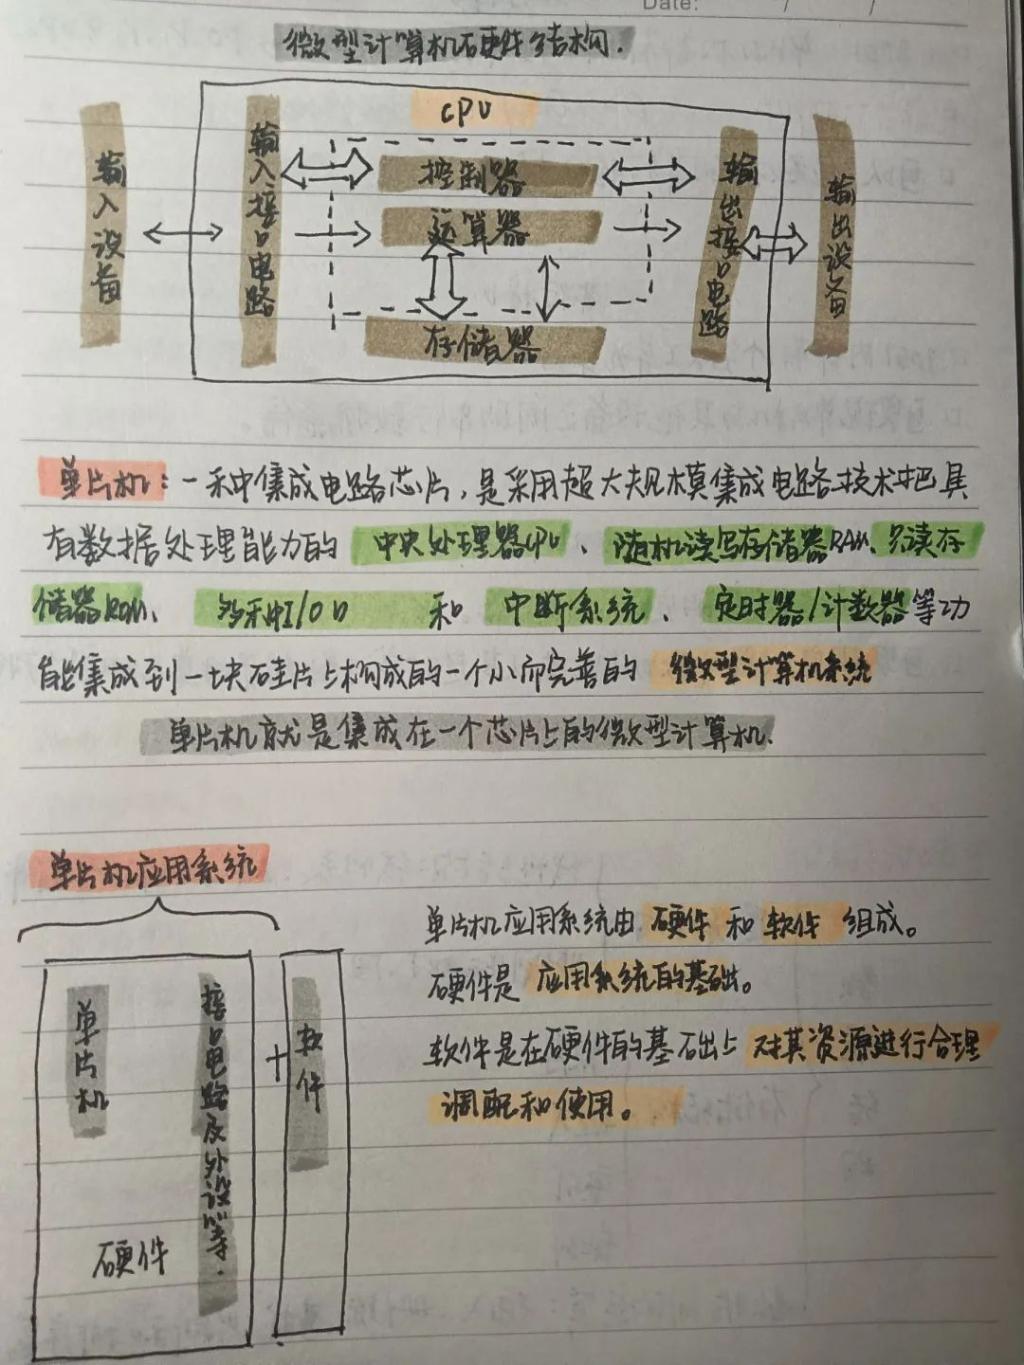 Date: / /
微型计算机硬件结构.
CPU
输入设备
输入接口电路
控制器
运算器
存储器
输出接口电路
输出设备
单片机:一种集成电路芯片,是采用超大规模集成电路技术把具
有数据处理能力的中央处理器CPU、随机读写存储器RAM、只读存
储器ROM、多种I/O口和中断系统、定时器/计数器等功
能集成到一块硅片上构成的一个小而完善的微型计算机系统
单片机就是集成在一个芯片上的微型计算机.
单片机应用系统
单片机
接口电路及外设等.
硬件
+
软件
单片机应用系统由硬件和软件组成。
硬件是应用系统的基础。
软件是在硬件的基础上对其资源进行合理
调配和使用。